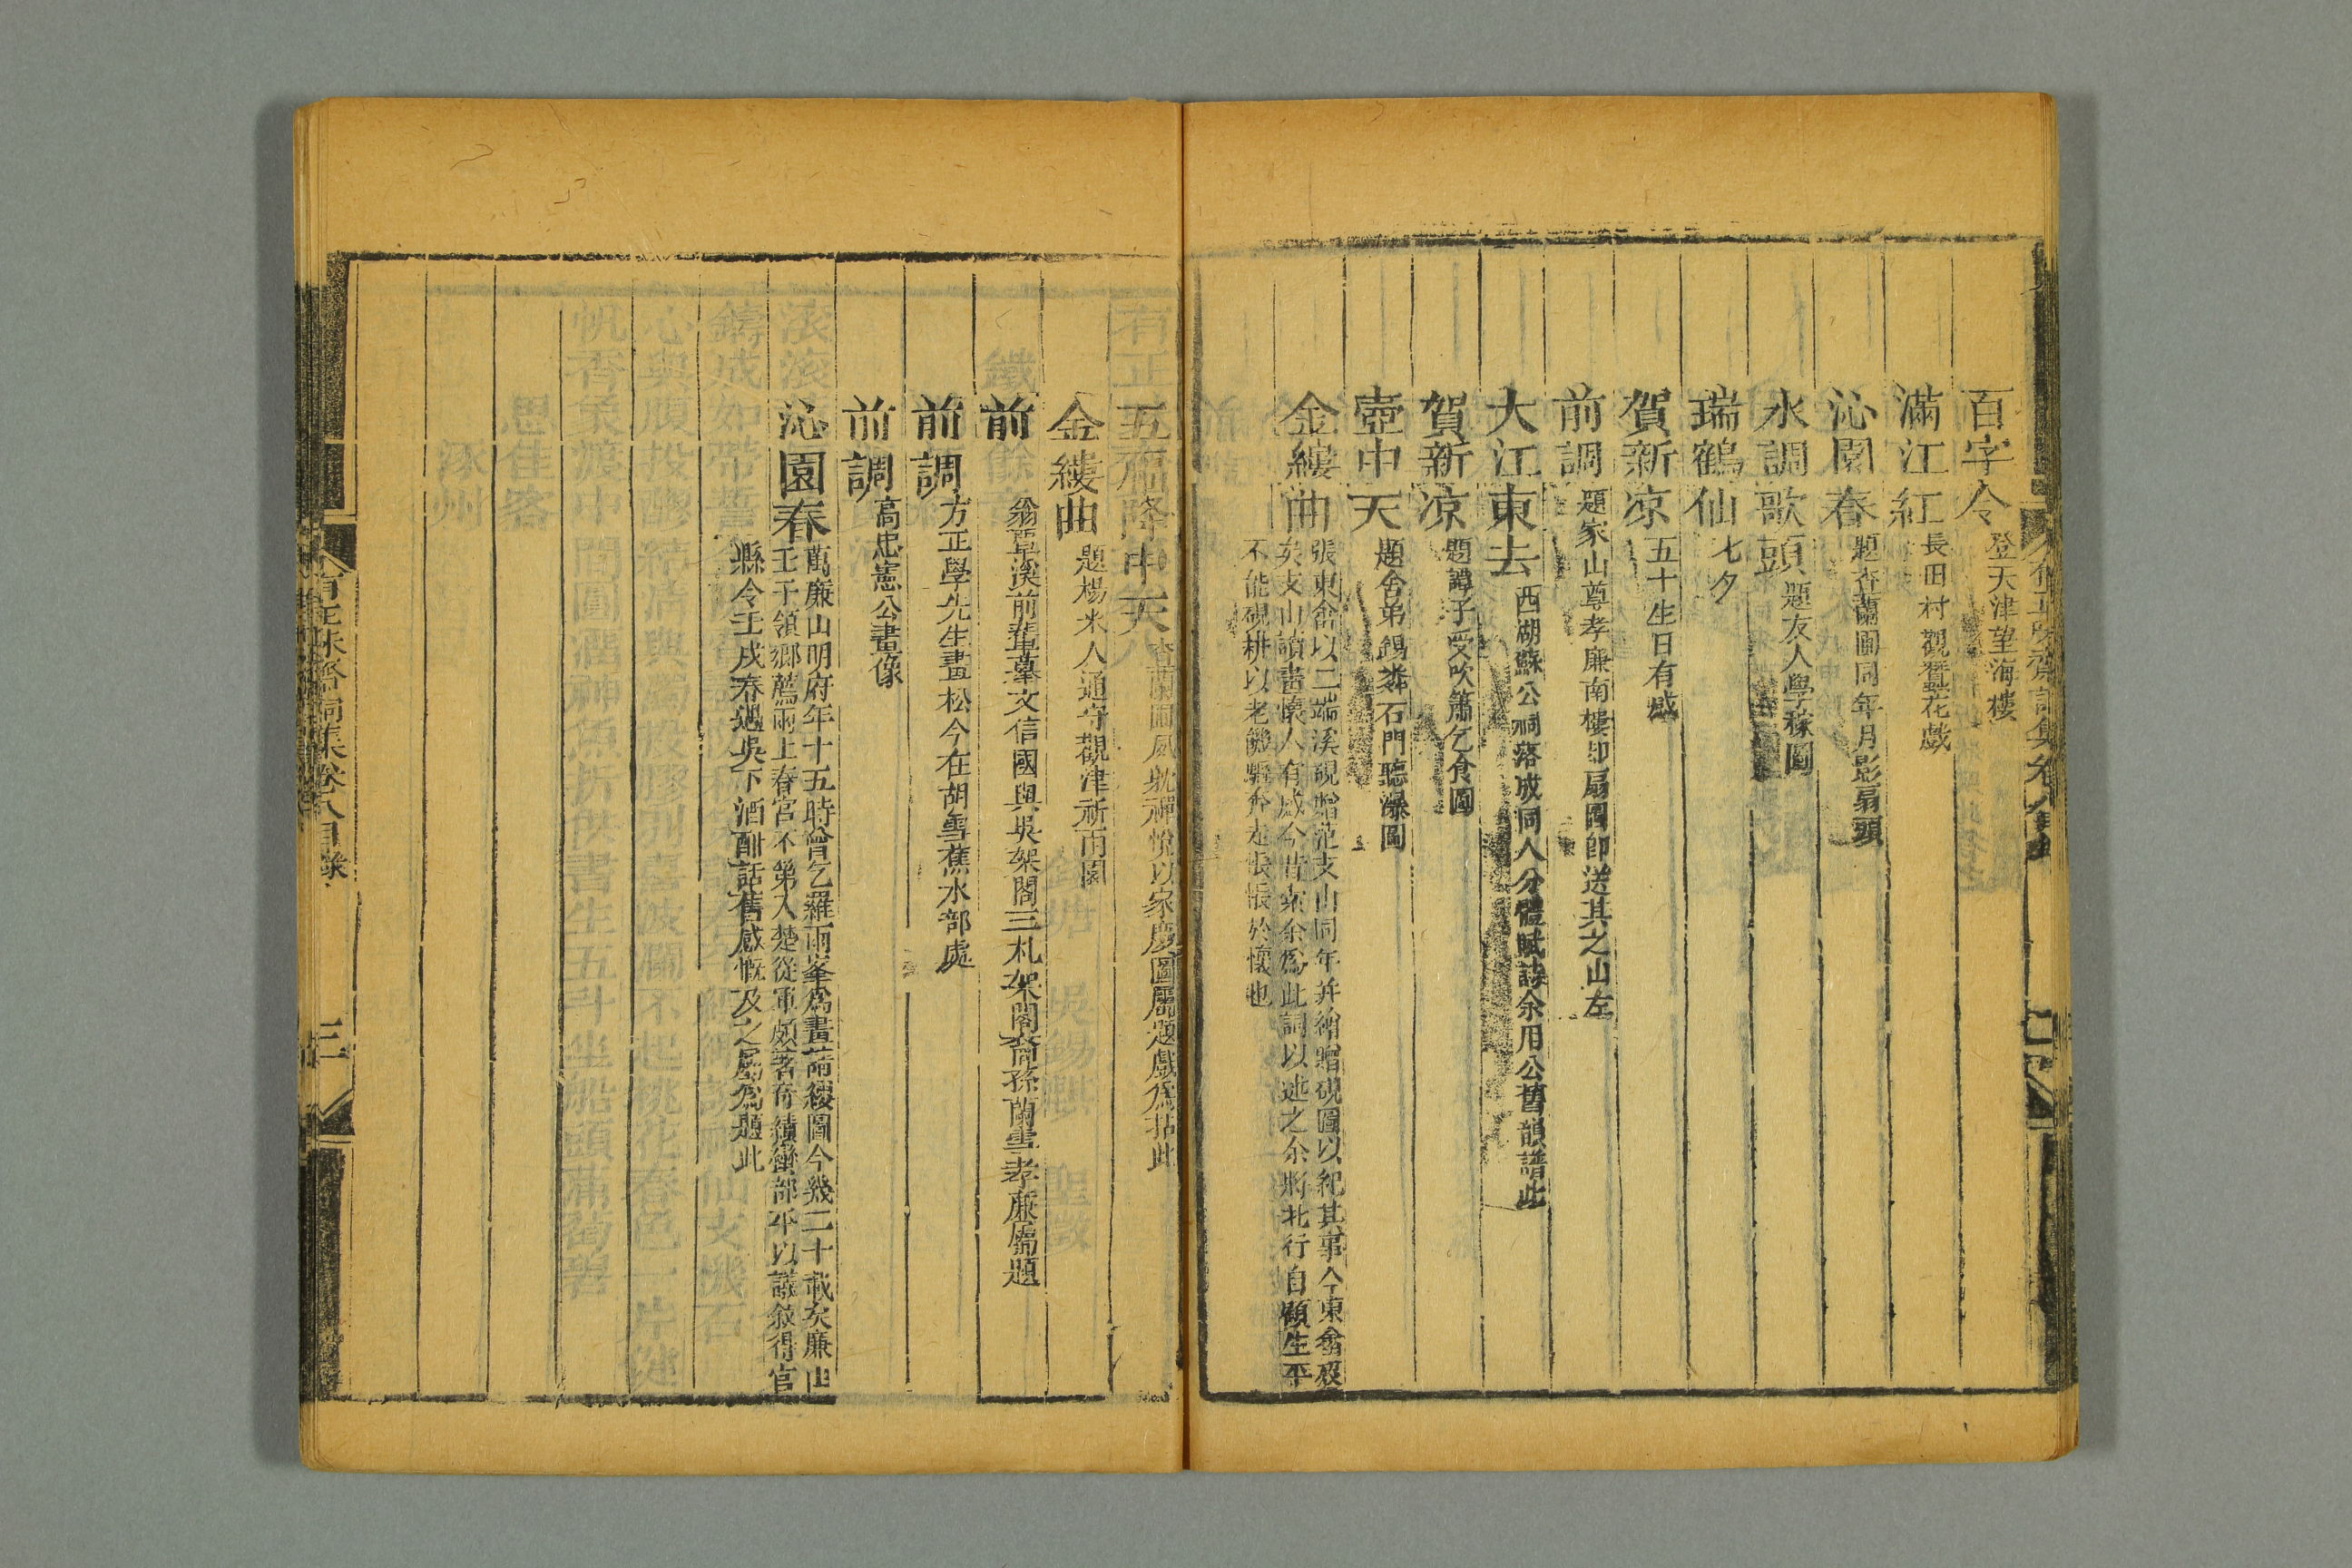 百字令登天津望海樓
滿江紅長田村觀蠶花戲
沁園春題杏蘭圃同年月影扇頭
水調歌頭題友人學稼圖
瑞鶴仙七夕
賀新涼五十生日有感
前調題家山尊孝廉南樓卽扇圖卽送其之山左
大江東去西湖蘇公祠落成同人分體賦詩余用公舊韻譜此
賀新凉題譚子受吹簫乞食圖
壺中天題舍弟錫粦石門聽瀑圖
金縷曲張東畬以二端溪硯贈范支山同年并繪贈硯圖以紀其事今東畬歿
矣支山讀畫懷人有感今昔索余爲此詞以述之余將北行自顧生平
不能硯耕以老饑驅奔走悵悵於懷也
五福降中天杏蘭圃風躭禪悅以家慶圖屬題戲爲拈此
金縷曲題楊米人通守觀津祈雨圖
前翁覃溪前輩摹文信國與吳架閣三札架閣裔孫蘭雪孝廉屬題
前調方正學先生畫松今在胡雪蕉水部處
前調高忠憲公畫像
沁園春萬廉山明府年十五時曾乞羅兩峯爲畫荷纓圖今幾二十載矣廉山
壬子領鄉薦兩上春官不第入楚從軍頗著奇績蠻部平以議敘得官
縣令壬戌春遇吳下酒酣話舊感慨及之屬爲題此
有正味齋詞集卷八目錄
三